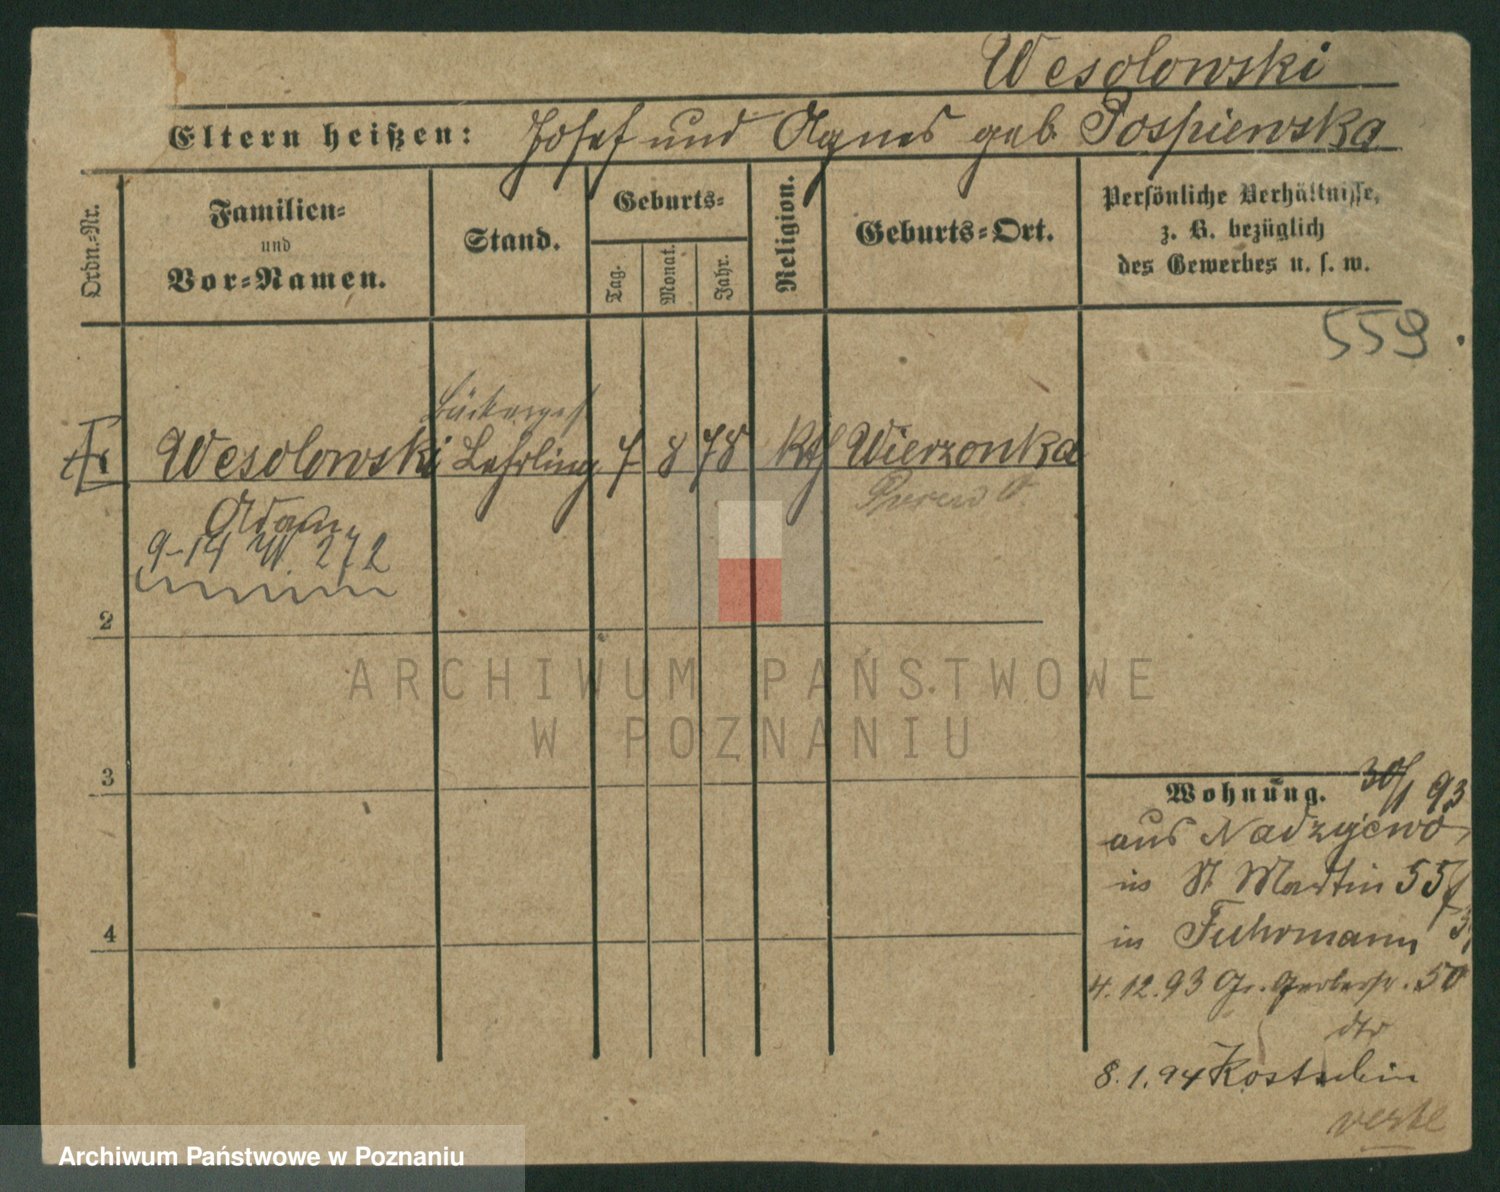 Wesolowski
Eltern heißen: Josef und Agnes geb. Pospiewska
Ordn.-Nr.
Familien-
und
Vor-Namen.
Stand.
Geburts-
Tag.
Monat.
Jahr.
Religion.
Geburts-Ort.
Persönliche Verhältnisse,
z. B. bezüglich
des Gewerbes u. s. w.
559.
Bäckerges
Wesolowski Lehrling 7 8 78 kth Wierzonka
Adam
9-14 W. 272
2
3
4
Wohnung. 30/1 93
aus
in St Martin 55
in Fuhrmann
4.12.93 Gr. Gerberstr. 50
dto
8.1.94 Kostschin
verte
ARCHIWUM PAŃSTWOWE
W POZNANIU
Archiwum Państwowe w Poznaniu